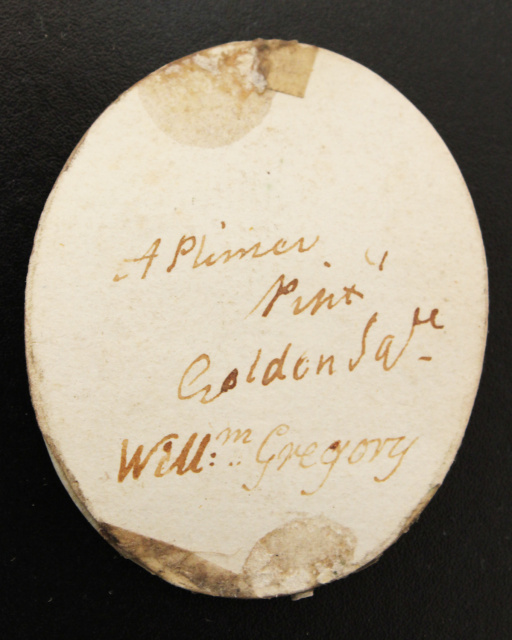 A Plimer
Pinx.t
Golden Sqre
Will:m Gregory